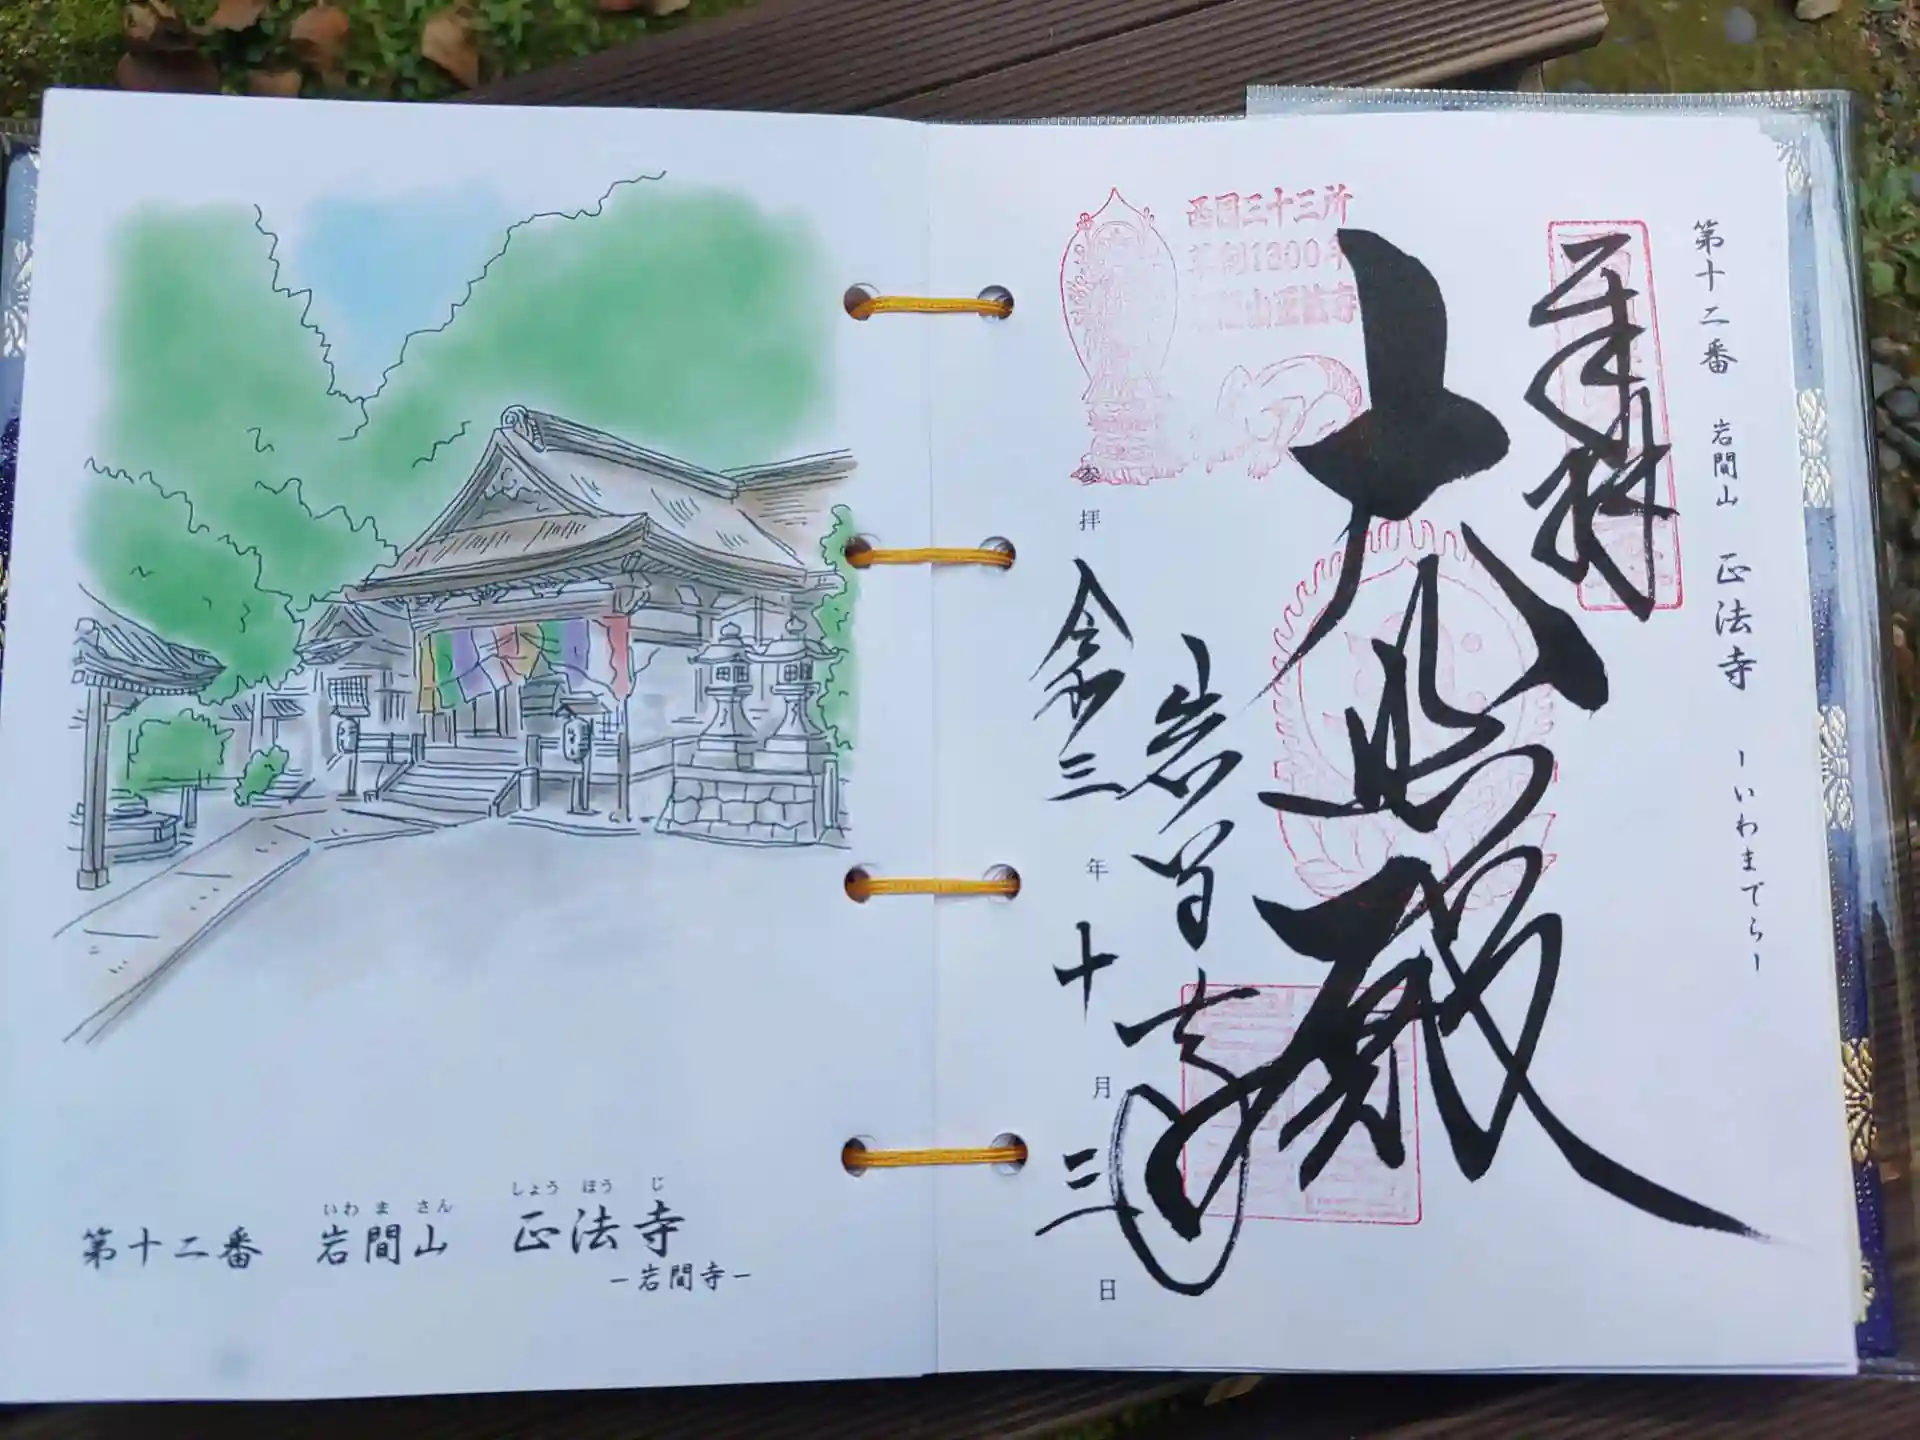 第十二番　岩間山　正法寺
しょう ほう じ
いわ ま さん
－岩間寺－
第十二番　岩間山　正法寺　－いわまでら－
奉拝
大悲殿
岩間寺
西国三十三所
草創1300年
岩間山正法寺
参拝 令和三年十月三日